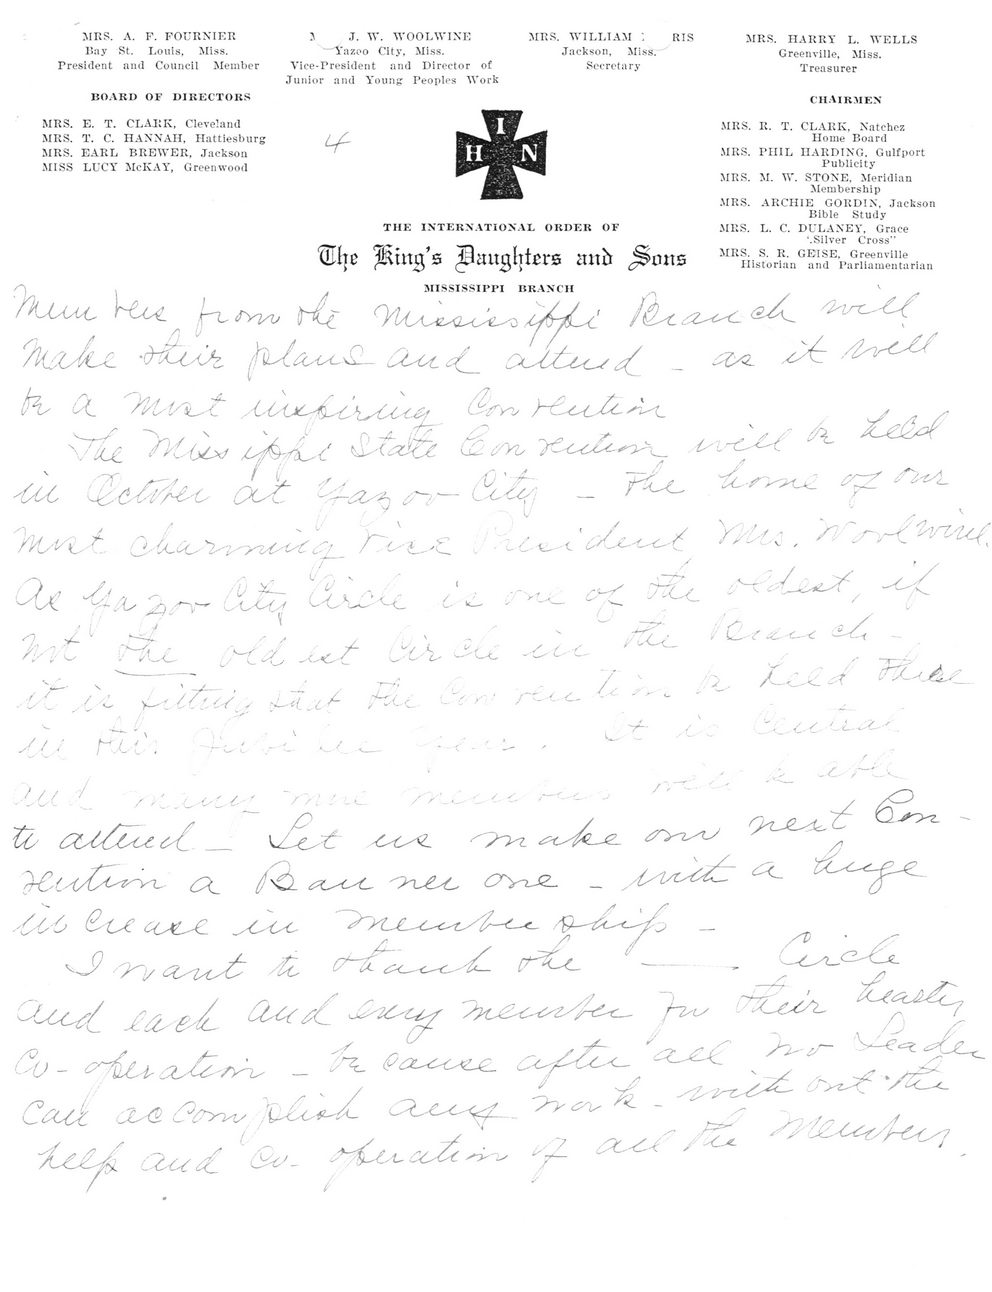 MRS. A. F. FOURNIER
Bay St. Louis, Miss.
President and Council Member
J. W. WOOLWINE
Yazoo City, Miss.
Vice-President and Director of
Junior and Young Peoples Work
MRS. WILLIAM RIS
Jackson, Miss.
Secretary
MRS. HARRY L. WELLS
Greenville, Miss.
Treasurer
BOARD OF DIRECTORS
MRS. E. T. CLARK, Cleveland
MRS. T. C. HANNAH, Hattiesburg
MRS. EARL BREWER, Jackson
MISS LUCY McKAY, Greenwood
4
I
H N
CHAIRMEN
MRS. R. T. CLARK, Natchez
Home Board
MRS. PHIL HARDING, Gulfport
Publicity
MRS. M. W. STONE, Meridian
Membership
MRS. ARCHIE GORDIN, Jackson
Bible Study
MRS. L. C. DULANEY, Grace
"Silver Cross"
MRS. S. R. GEISE, Greenville
Historian and Parliamentarian
THE INTERNATIONAL ORDER OF
The King's Daughters and Sons
MISSISSIPPI BRANCH
Members from the Mississippi Branch will
make their plans and attend - as it will
be a most inspiring Convention
The Mississippi State Convention will be held
in October at Yazoo City - the home of our
most charming Vice President Mrs. Woolwine.
As Yazoo City Circle is one of the oldest, if
not the oldest Circle in the Branch -
it is fitting that the Convention be held there
in this Jubilee Year. It is Central
and many more members will be able
to attend - Let us make our next Con-
vention a Banner one - with a huge
increase in membership -
I want to thank the ——— Circle
and each and every member for their hearty
Co-operation - because after all no Leader
can accomplish any work - with out the
help and Co-operation of all the Members.